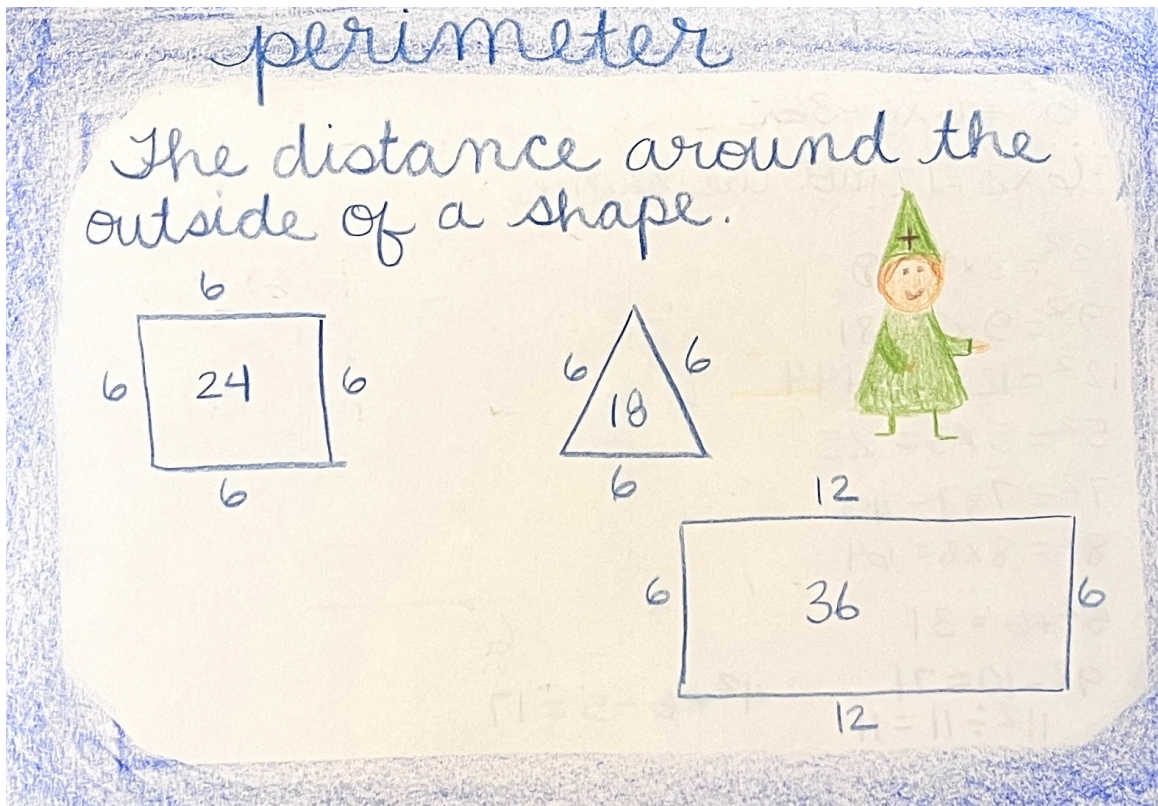 perimeter
The distance around the
outside of a shape.
6
6 24 6
6
6 6
18
6
12
6 36 6
12